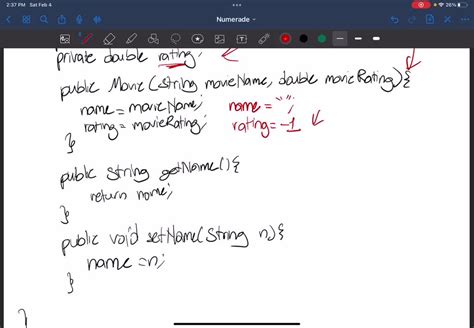 2:37 PM Sat Feb 4
26%
Numerade
private double rating;
public Movie(String movieName, double movieRating){
name = movieName; name = "";
rating = movieRating; rating = -1
}
public String getName(){
return name;
}
public void setName(String n){
name = n;
}
}